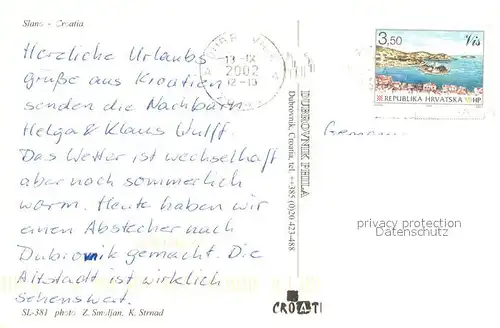 Slano - Croatia
Herzliche Urlaubs
grüße aus Kroatien
senden die Nachbarn
Helga & Klaus Wulff.
Das Wetter ist wechselhaft
aber noch sommerlich
warm. Heute haben wir
einen Abstecher nach
Dubrovnik gemacht. Die
Altstadt ist wirklich
sehenswert.
SL-381 photo Z. Smoljan, K. Strnad
13-IX
2002
12-13
DUBROVNIK FEHLA
Dubrovnik, Croatia, tel. ++385 (0)20/423-488
CROATI
3,50
Vis
REPUBLIKA HRVATSKA
HP
Germany
privacy protection
Datenschutz